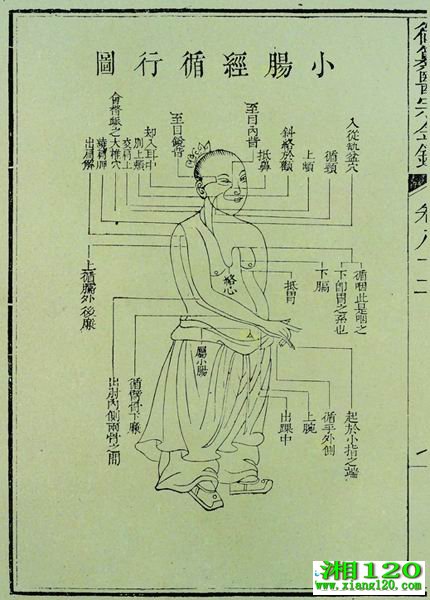 御纂醫宗金鑑
卷八十二
小腸經循行圖
入從缺盆穴
循頸
上頰
斜絡於顴
抵鼻
至目內眥
至目銳眥
却入耳中
別上頰
交肩上
會督脈之
大椎穴
繞肩胛
出肩解
循咽此是咽之
下即胃之系也
下膈
抵胃
絡心
屬小腸
上循臑外後廉
起於小指之端
循手外側
上腕
出踝中
循臂骨下廉
出肘內側兩骨之間
湘120
www.xiang120.com